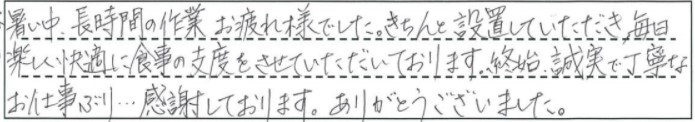 暑い中、長時間の作業 お疲れ様でした。きちんと設置していただき、毎日
楽しく快適に食事の支度をさせていただいております。終始、誠実で丁寧な
お仕事ぶり…感謝しております。ありがとうございました。